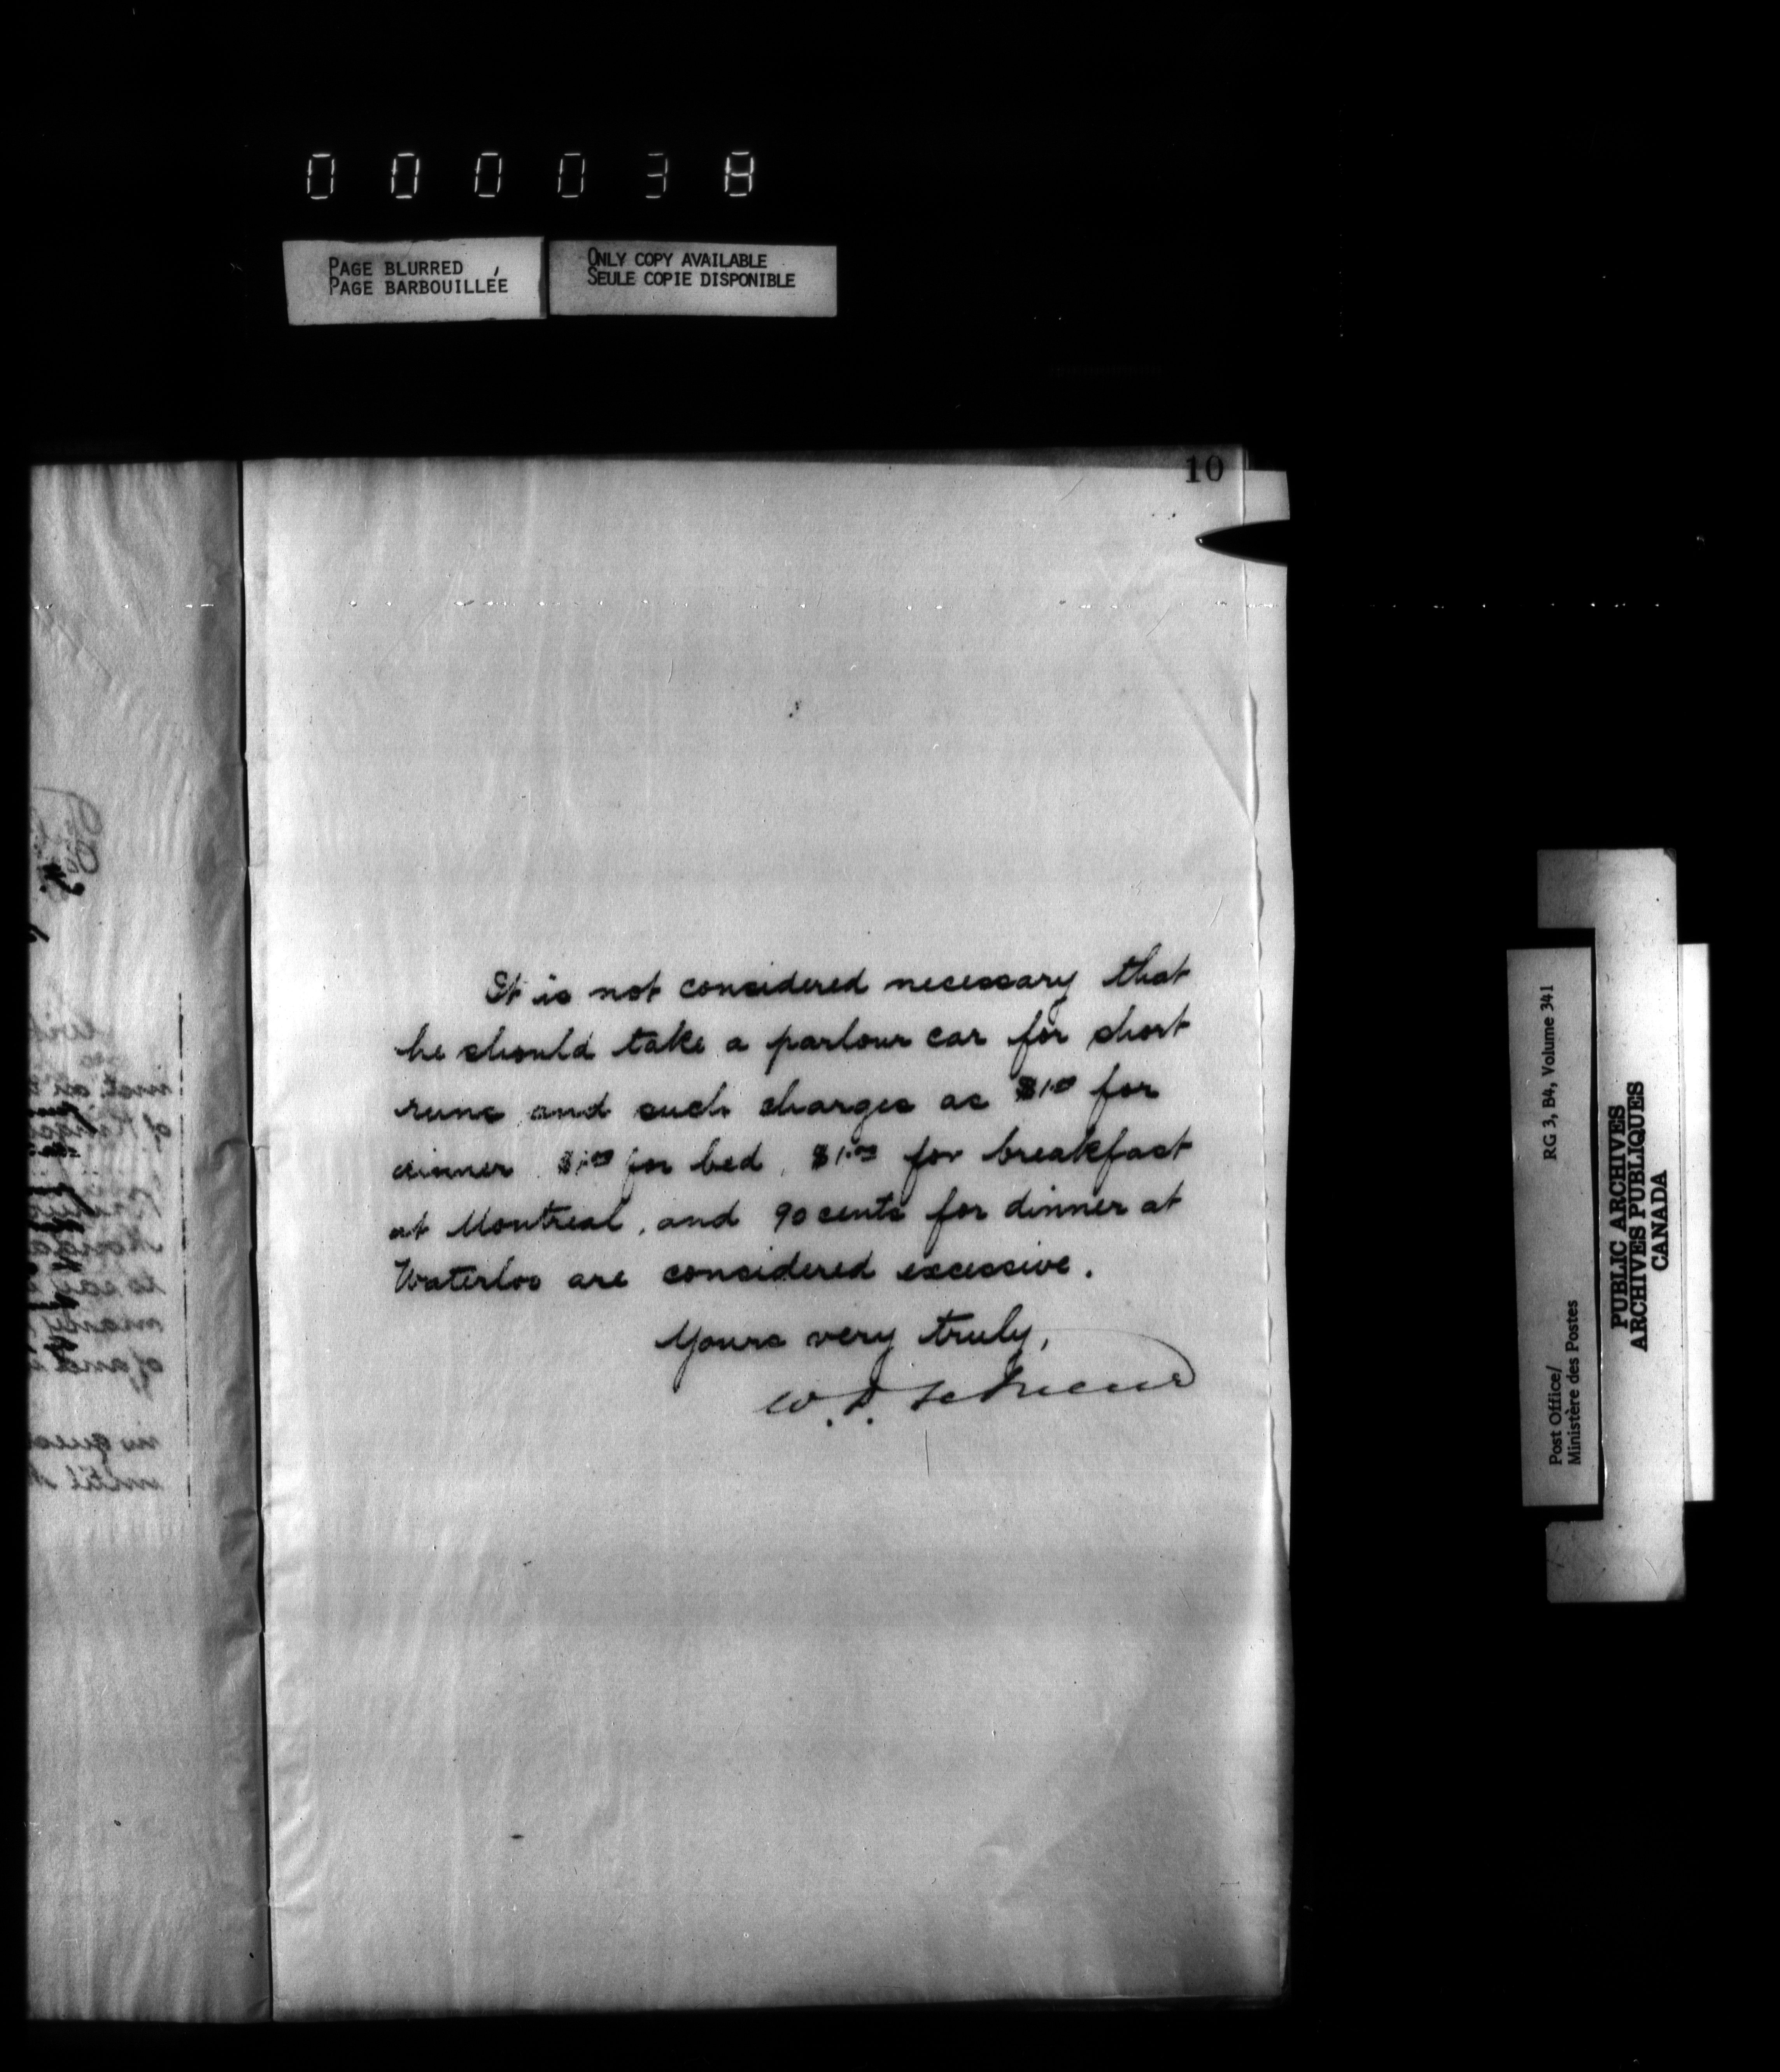 000038
PAGE BLURRED
PAGE BARBOUILLÉE
ONLY COPY AVAILABLE
SEULE COPIE DISPONIBLE
10
It is not considered necessary that
he should take a parlour car for short
runs and such charges as $1.00 for
dinner $1.00 for bed, $1.00 for breakfast
at Montreal, and 90 cents for dinner at
Waterloo are considered excessive.
Yours very truly,
W.
RG 3, B4, Volume 341
Post Office/
Ministère des Postes
PUBLIC ARCHIVES
ARCHIVES PUBLIQUES
CANADA